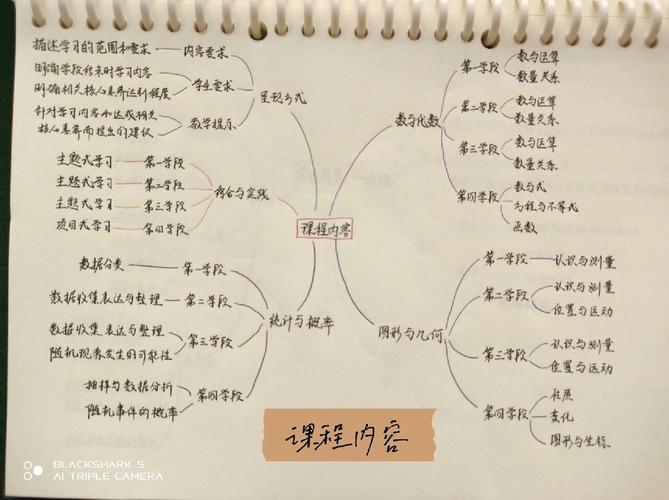 描述学习的范围和要求
内容要求
明确学段结束时学习内容
明确相关核心素养达到程度
学业要求
针对学习内容和达成相关
核心素养而提出的建议
教学提示
呈现方式
主题式学习 第一学段
主题式学习 第二学段
主题式学习 第三学段
项目式学习 第四学段
综合与实践
数据分类 第一学段
数据收集表达与整理 第二学段
数据收集表达与整理
随机现象发生的可能性
第三学段
抽样与数据分析
随机事件的概率
第四学段
统计与概率
课程内容
数与代数
第一学段
数与运算
数量关系
第二学段
数与运算
数量关系
第三学段
数与运算
数量关系
第四学段
数与式
方程与不等式
函数
图形与几何
第一学段
认识与测量
第二学段
认识与测量
位置与运动
第三学段
认识与测量
位置与运动
第四学段
性质
变化
图形与坐标
课程内容
BLACKSHARK 5
AI TRIPLE CAMERA